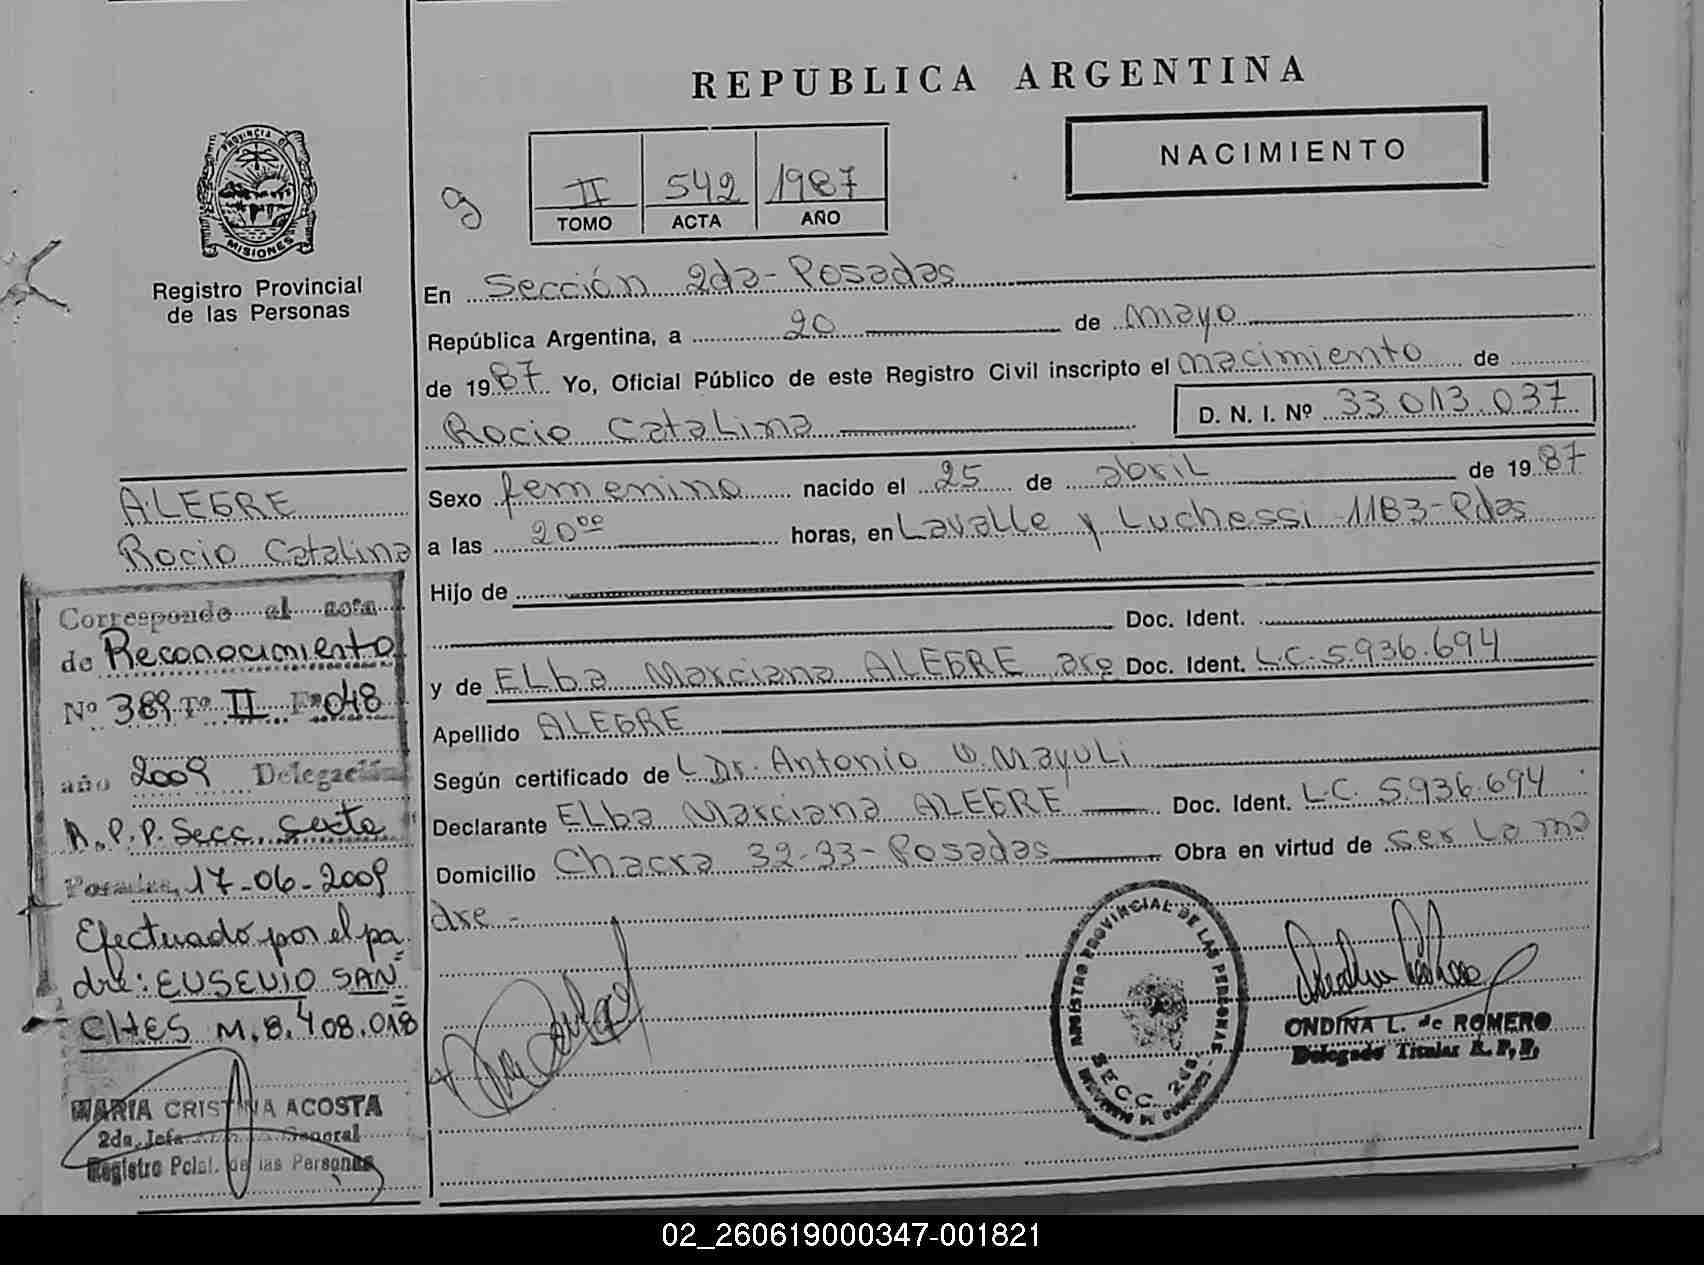 REPUBLICA ARGENTINA
NACIMIENTO
g
II 542 1987
TOMO ACTA AÑO
PROVINCIA D
MISIONES
Registro Provincial
de las Personas
En Sección 2da - Posadas
República Argentina, a 20 de mayo
de 1987 Yo, Oficial Público de este Registro Civil inscripto el nacimiento de
Rocio Catalina D. N. I. Nº 33.013.037
Sexo femenino nacido el 25 de abril de 1987
a las 20 00 horas, en Lavalle y Luchessi 1183-Pdas
Hijo de
Doc. Ident.
y de ELba Marciana ALEGRE, arg Doc. Ident. L.C. 5.936.694
Apellido ALEGRE
Según certificado de L Dr. Antonio O. Mayuli
Declarante ELba Marciana ALEGRE Doc. Ident. L.C. 5936.694
Domicilio Chacra 32-33-Posadas Obra en virtud de ser La ma
dre.-
ALEGRE
Rocio Catalina
Corresponde al acta
de Reconocimiento
Nº 389 Tº II Fº 048
año 2009 Delegación
R.P.P. Secc. Sexta
Posadas, 17-06-2009
Efectuado por el pa
dre: EUSEVIO SAN
CHES M.8.408.018
MARIA CRISTINA ACOSTA
2da. Jefa General
Registro Pcial. de las Personas
REGISTRO PROVINCIAL DE LAS PERSONAS
SECC. 2da
ONDINA L. de ROMERO
Delegado Titular R. P. P.
02_260619000347-001821